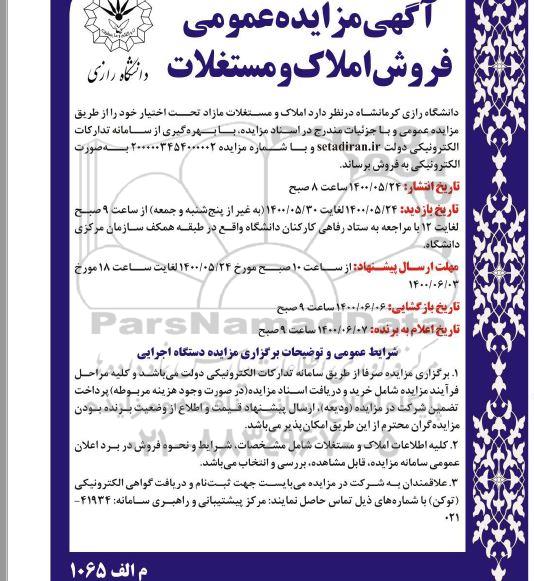 آگهی مزایده عمومی
فروش املاک و مستغلات
دانشگاه رازی
دانشگاه رازی کرمانشاه درنظر دارد املاک و مستغلات مازاد تحت اختیار خود را از طریق
مزایده عمومی و با جزئیات مندرج در اسناد مزایده، با بهره‌گیری از سامانه تدارکات
الکترونیکی دولت setadiran.ir و با شماره مزایده ۲۰۰۰۰۰۳۴۵۴۰۰۰۰۰۲ به‌صورت
الکترونیکی به فروش برساند.
تاریخ انتشار: ۱۴۰۰/۰۵/۲۴ ساعت ۸ صبح
تاریخ بازدید: ۱۴۰۰/۰۵/۲۴ لغایت ۱۴۰۰/۰۵/۳۰ (به غیر از پنج‌شنبه و جمعه) از ساعت ۹ صبح
لغایت ۱۲ با مراجعه به ستاد رفاهی کارکنان دانشگاه واقع در طبقه همکف سازمان مرکزی
دانشگاه.
مهلت ارسال پیشنهاد: از ساعت ۱۰ صبح مورخ ۱۴۰۰/۰۵/۲۴ لغایت ساعت ۱۸ مورخ
۱۴۰۰/۰۶/۰۳
تاریخ بازگشایی: ۱۴۰۰/۰۶/۰۶ ساعت ۹ صبح
ParsNamadData
تاریخ اعلام به برنده: ۱۴۰۰/۰۶/۰۷ ساعت ۹ صبح
شرایط عمومی و توضیحات برگزاری مزایده دستگاه اجرایی
۱. برگزاری مزایده صرفا از طریق سامانه تدارکات الکترونیکی دولت می‌باشد و کلیه مراحل
فرآیند مزایده شامل خرید و دریافت اسناد مزایده(در صورت وجود هزینه مربوطه) پرداخت
تضمین شرکت در مزایده (ودیعه)، ارسال پیشنهاد قیمت و اطلاع از وضعیت برنده بودن
مزایده‌گران محترم از این طریق امکان‌پذیر می‌باشد.
۲. کلیه اطلاعات املاک و مستغلات شامل مشخصات، شرایط و نحوه فروش در برد اعلان
عمومی سامانه مزایده، قابل مشاهده، بررسی و انتخاب می‌باشد.
۳. علاقمندان به شرکت در مزایده می‌بایست جهت ثبت‌نام و دریافت گواهی الکترونیکی
(توکن) با شماره‌های ذیل تماس حاصل نمایند: مرکز پیشتیبانی و راهبری سامانه: ۴۱۹۳۴-
۰۲۱
م الف ۱۰۶۵